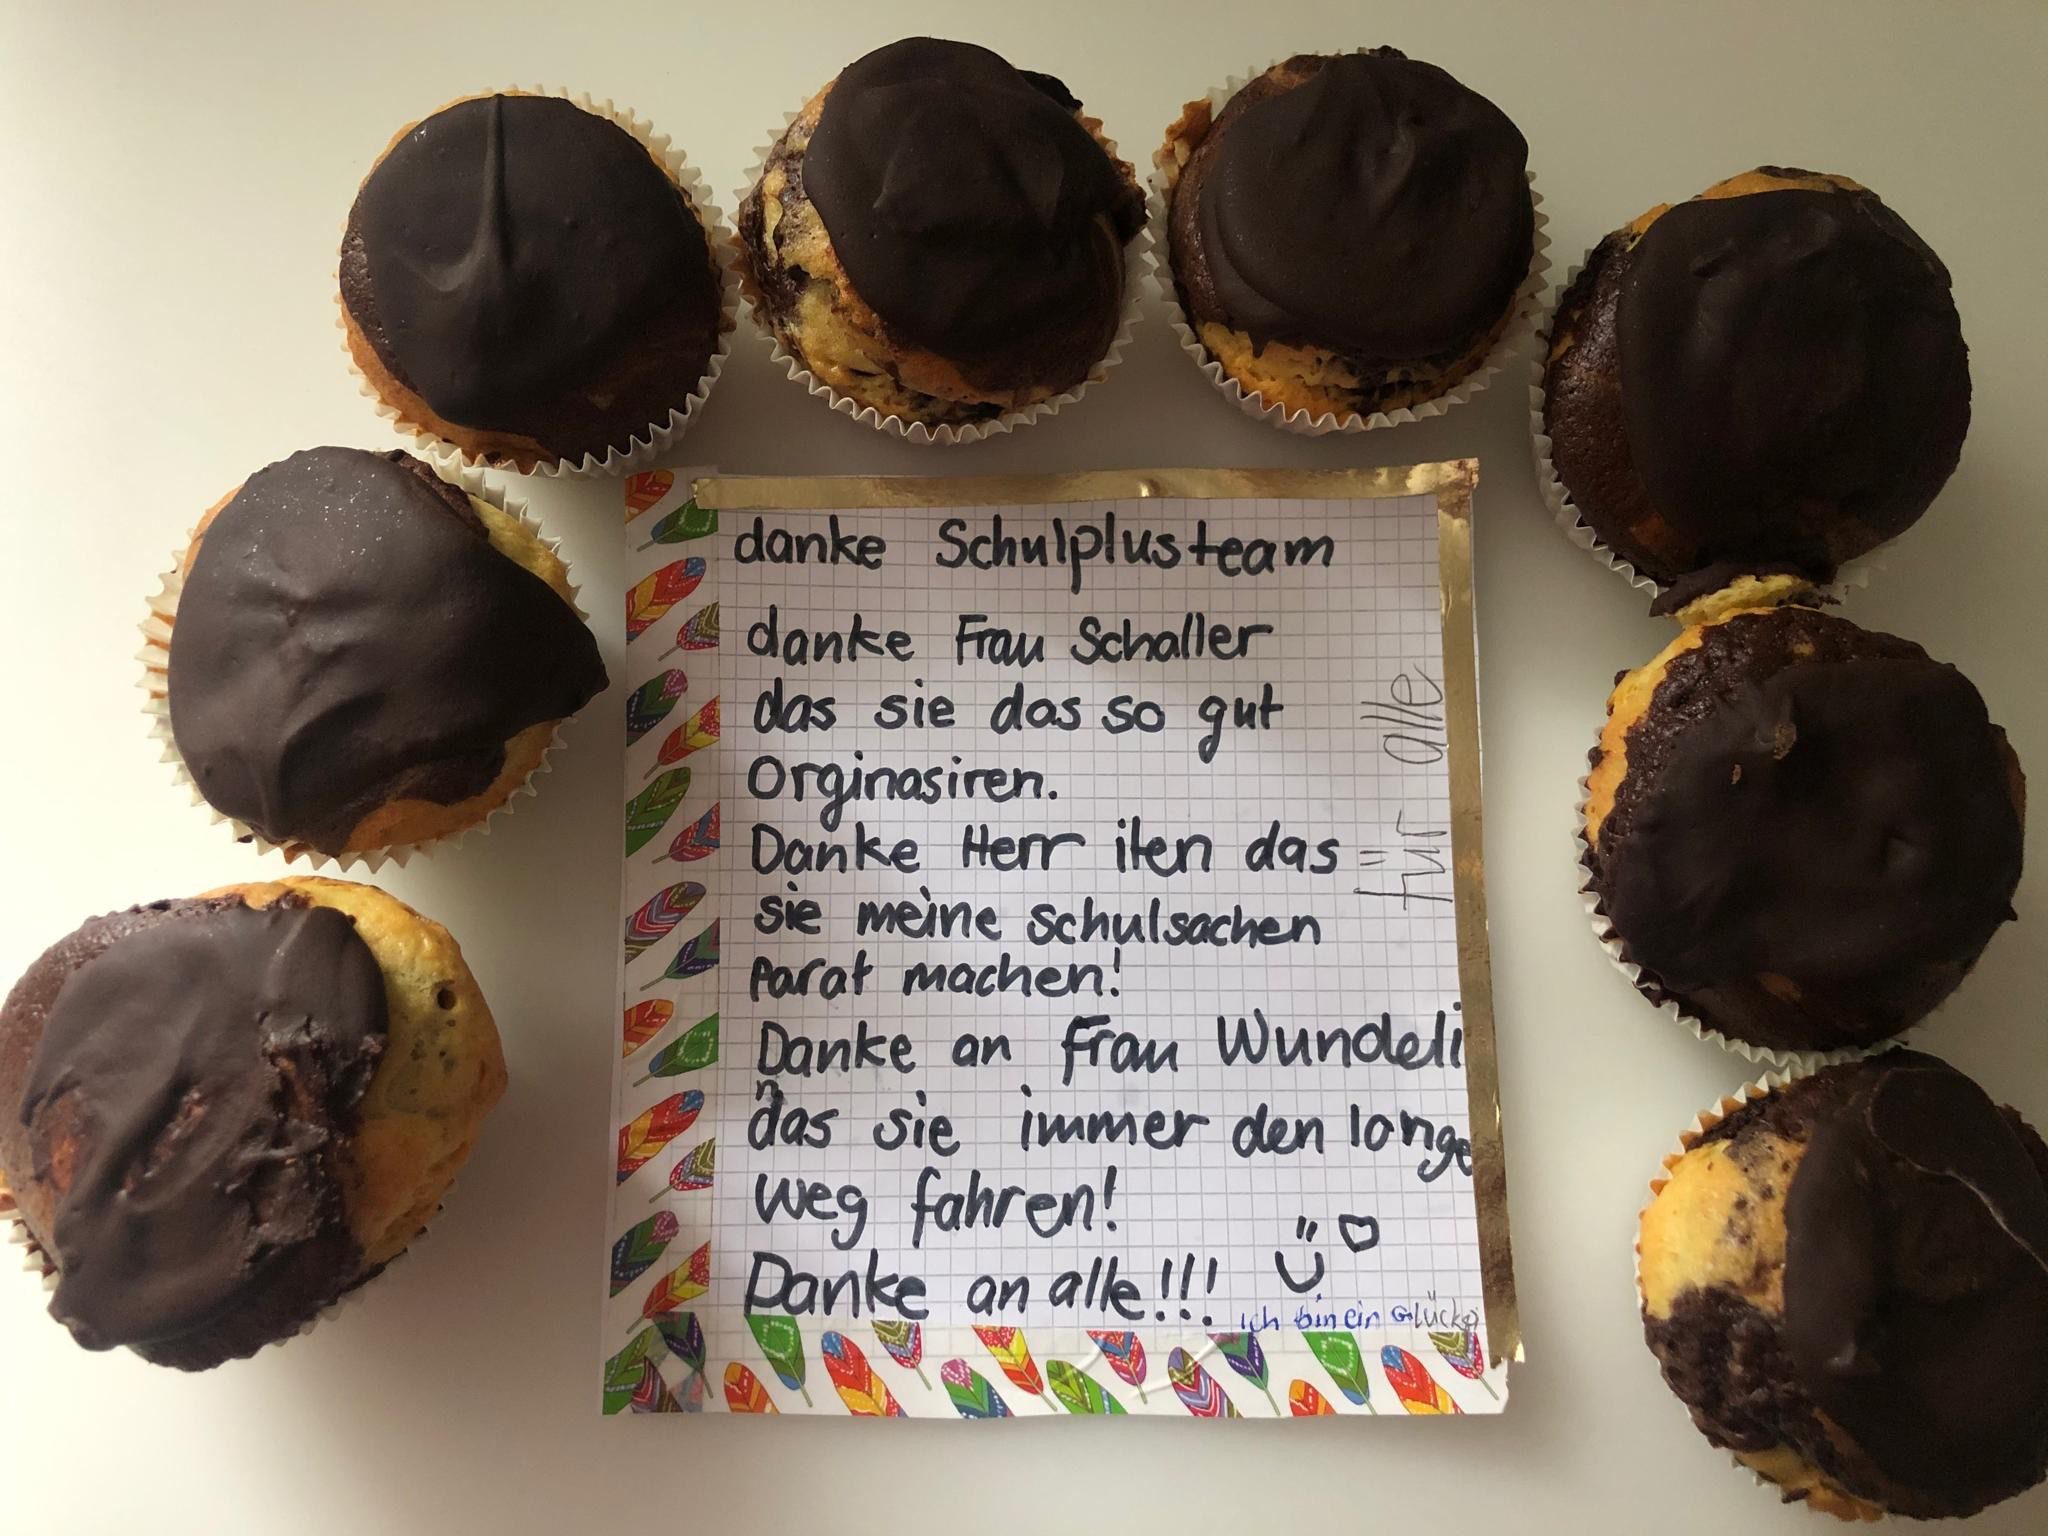 danke Schulplusteam
danke Frau Schaller
das sie das so gut
Orginasiren.
Danke Herr iten das
sie meine schulsachen
Parat machen!
Danke an Frau Wundeli
das sie immer den lange
n
weg fahren!
Danke an alle!!!
ich bin ein
für alle